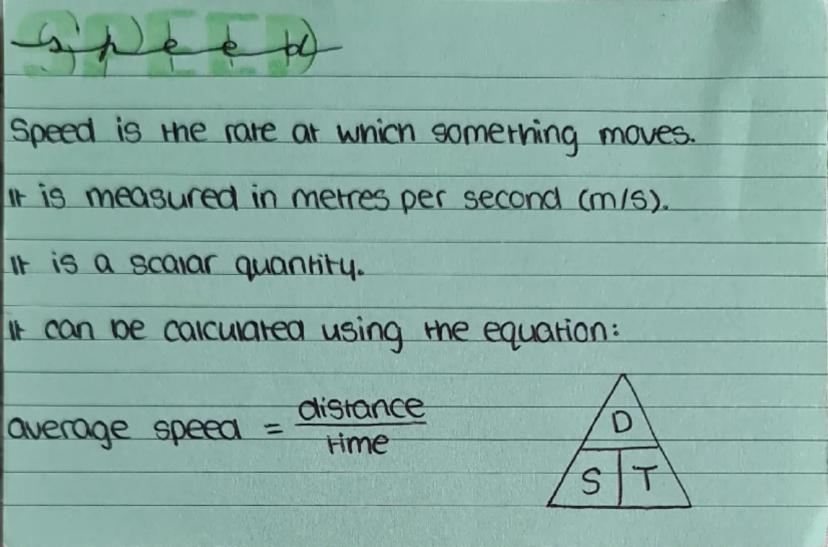 speed
Speed is the rate at which something moves.
It is measured in metres per second (m/s).
It is a scalar quantity.
It can be calculated using the equation:
average speed = distance
time
D
S T